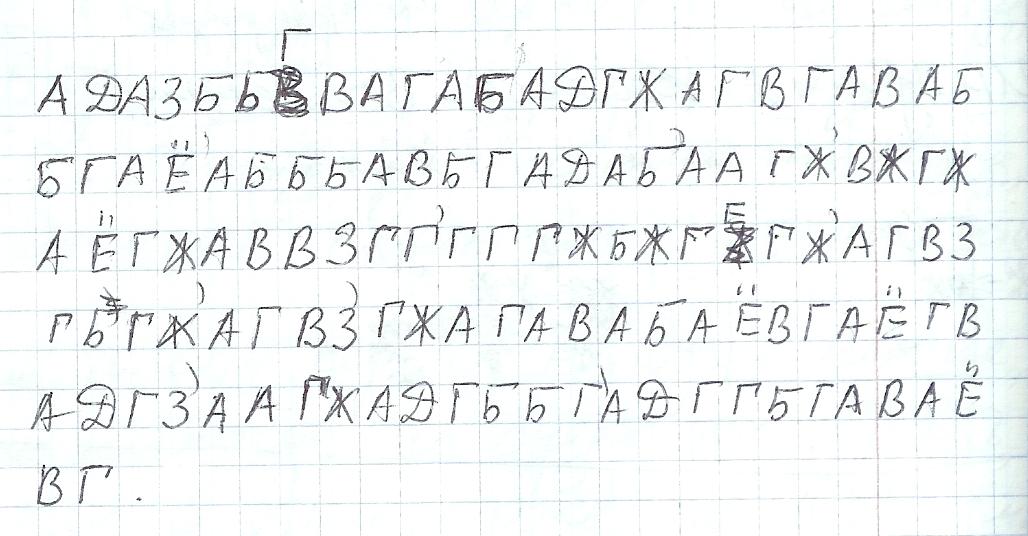 АДАЗББГВАГАБАДГЖАГВГАВАБ
БГАЁ)АБББАВБГАДАБ)ААГЖ)ВЖГЖ
АЁГЖАВВЗГГ)ГГГЖБЖГЕГЖ)АГВЗ
ГБЖГЖ)АГВЗ)ГЖАГАВАБАЁВГАЁГВ
АДГЗ)ААГЖАДГББГ)АДГГБГАВАЁ
ВГ.